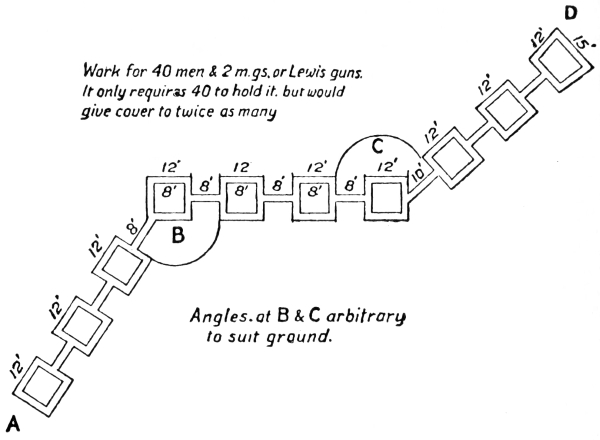 D
12' 15'
Work for 40 men & 2 m.gs. or Lewis guns.
It only requires 40 to hold it. but would
give cover to twice as many
12'
12'
C
12' 12 12' 12'
8' 8' 8' 8' 8' 8' 10'
B
8'
12'
12'
12'
A
Angles at B & C arbitrary
to suit ground.